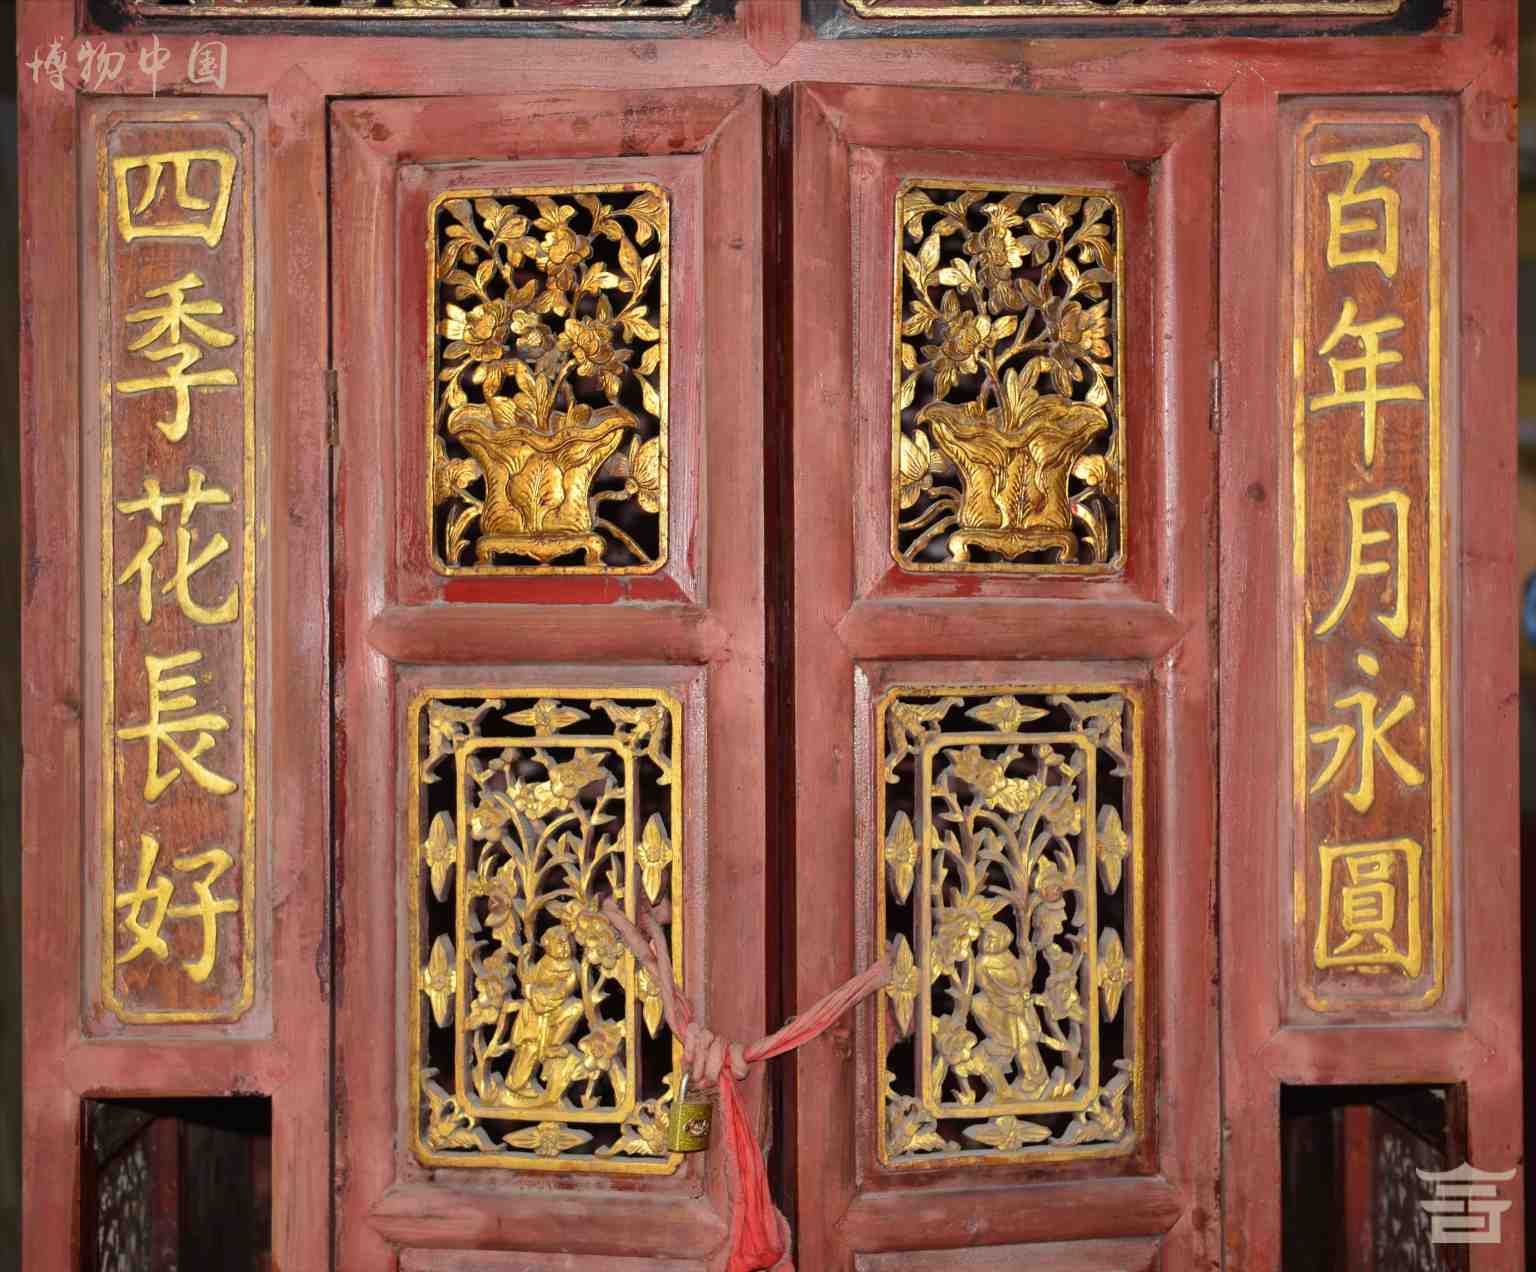 博物中国
百年月永圓
四季花長好